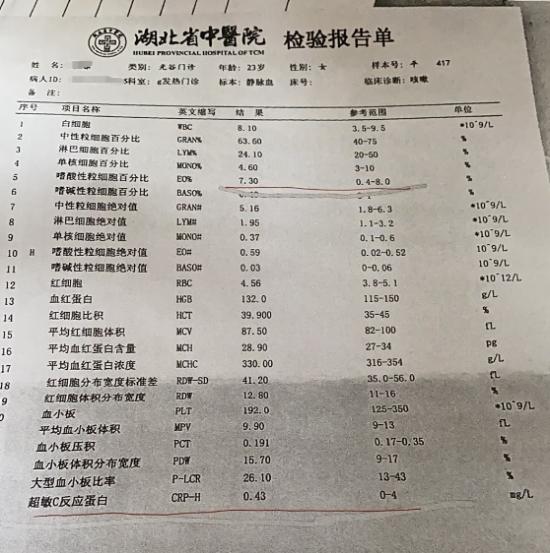 湖北省中醫院 检验报告单
HUBEI PROVINCIAL HOSPITAL OF TCM
姓 名: 类别: 光谷门诊 年龄: 23岁 性别: 女 样本号: 平 417
病人ID: 5科室: g发热门诊 标本: 静脉血 床号: 临床诊断: 咳嗽
备 注:
序号 项目名称 英文缩写 结 果 参考范围 单位
1 白细胞 WBC 8.10 3.5-9.5 *10^9/L
2 中性粒细胞百分比 GRAN% 63.60 40-75 %
3 淋巴细胞百分比 LYM% 24.10 20-50 %
4 单核细胞百分比 MONO% 4.60 3-10 %
5 嗜酸性粒细胞百分比 EO% 7.30 0.4-8.0 %
6 嗜碱性粒细胞百分比 BASO% %
7 中性粒细胞绝对值 GRAN# 5.16 1.8-6.3 *10^9/L
8 淋巴细胞绝对值 LYM# 1.95 1.1-3.2 *10^9/L
9 单核细胞绝对值 MONO# 0.37 0.1-0.6 *10^9/L
10 H 嗜酸性粒细胞绝对值 EO# 0.59 0.02-0.52 10^9/L
11 嗜碱性粒细胞绝对值 BASO# 0.03 0-0.06 10^9/L
12 红细胞 RBC 4.56 3.8-5.1 *10^12/L
13 血红蛋白 HGB 132.0 115-150 g/L
14 红细胞比积 HCT 39.900 35-45 %
15 平均红细胞体积 MCV 87.50 82-100 fL
16 平均血红蛋白含量 MCH 28.90 27-34 pg
17 平均血红蛋白浓度 MCHC 330.00 316-354 g/L
18 红细胞分布宽度标准差 RDW-SD 41.20 35.0-56.0 fL
9 红细胞体积分布宽度 RDW 12.80 11-16 %
0 血小板 PLT 192.0 125-350 *10^9/L
平均血小板体积 MPV 9.90 9-13 fL
血小板压积 PCT 0.191 0.17-0.35 %
血小板体积分布宽度 PDW 15.70 9-17 %
大型血小板比率 P-LCR 26.10 13-43 %
超敏C反应蛋白 CRP-H 0.43 0-4 mg/L